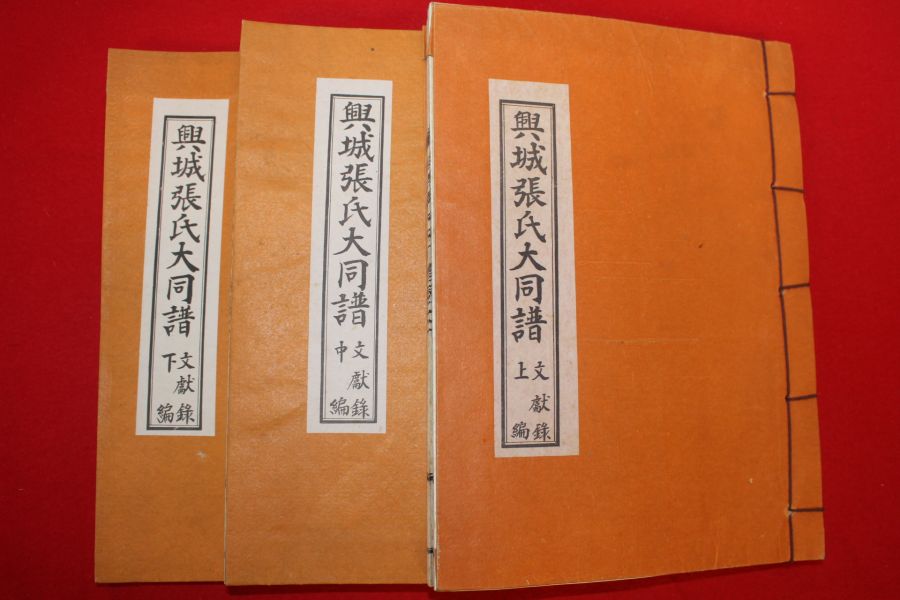 興城張氏大同譜
文獻錄
上編
興城張氏大同譜
文獻錄
中編
興城張氏大同譜
文獻錄
下編